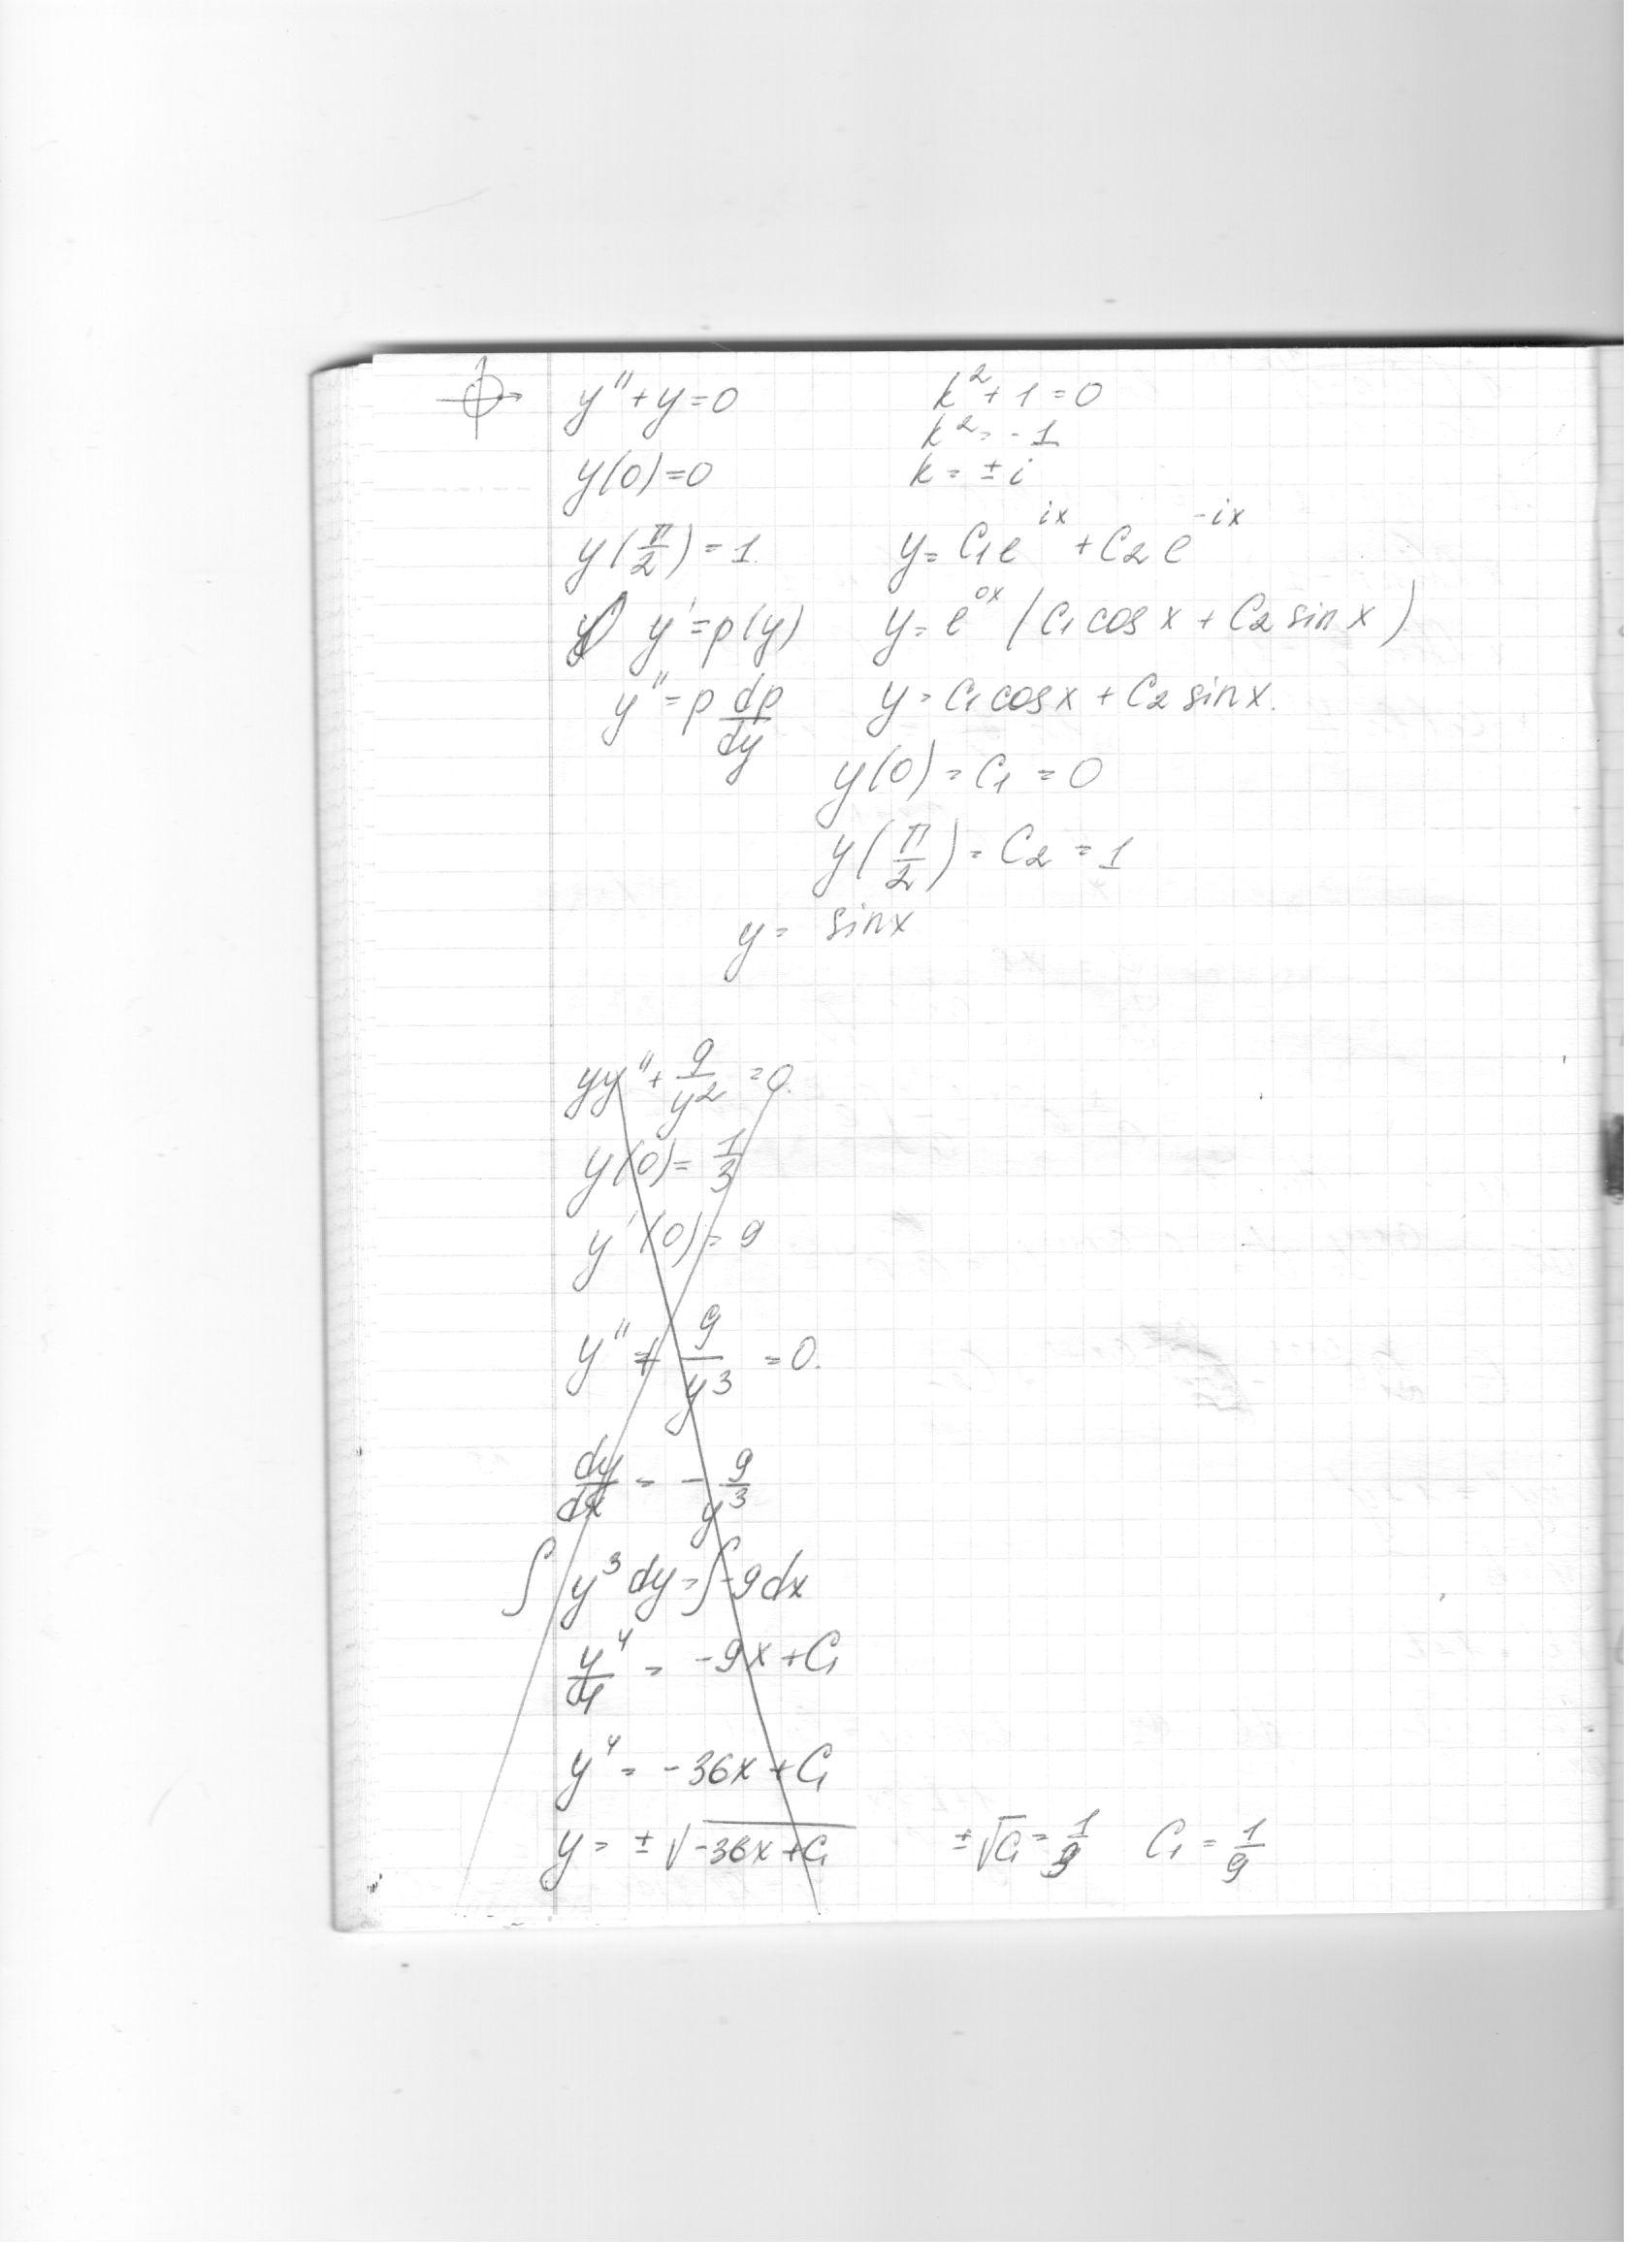 y'' + y = 0
k² + 1 = 0
k² = -1
y(0) = 0
k = ± i
y(π/2) = 1.
y = C₁e^{ix} + C₂e^{-ix}
y' = p(y)
y = e^{0x} (C₁ cos x + C₂ sin x)
y'' = p dp/dy
y = C₁ cos x + C₂ sin x.
y(0) = C₁ = 0
y(π/2) = C₂ = 1
y = sin x
yy'' + 9/y² = 0.
y(0) = 1/3
y'(0) = 9
y'' + 9/y³ = 0.
dy/dx = - 9/y³
∫ y³ dy = ∫ -9 dx
y⁴/4 = -9x + C₁
y⁴ = -36x + C₁
y = ± √(-36x + C₁)
± √C₁ = 1/3
C₁ = 1/9